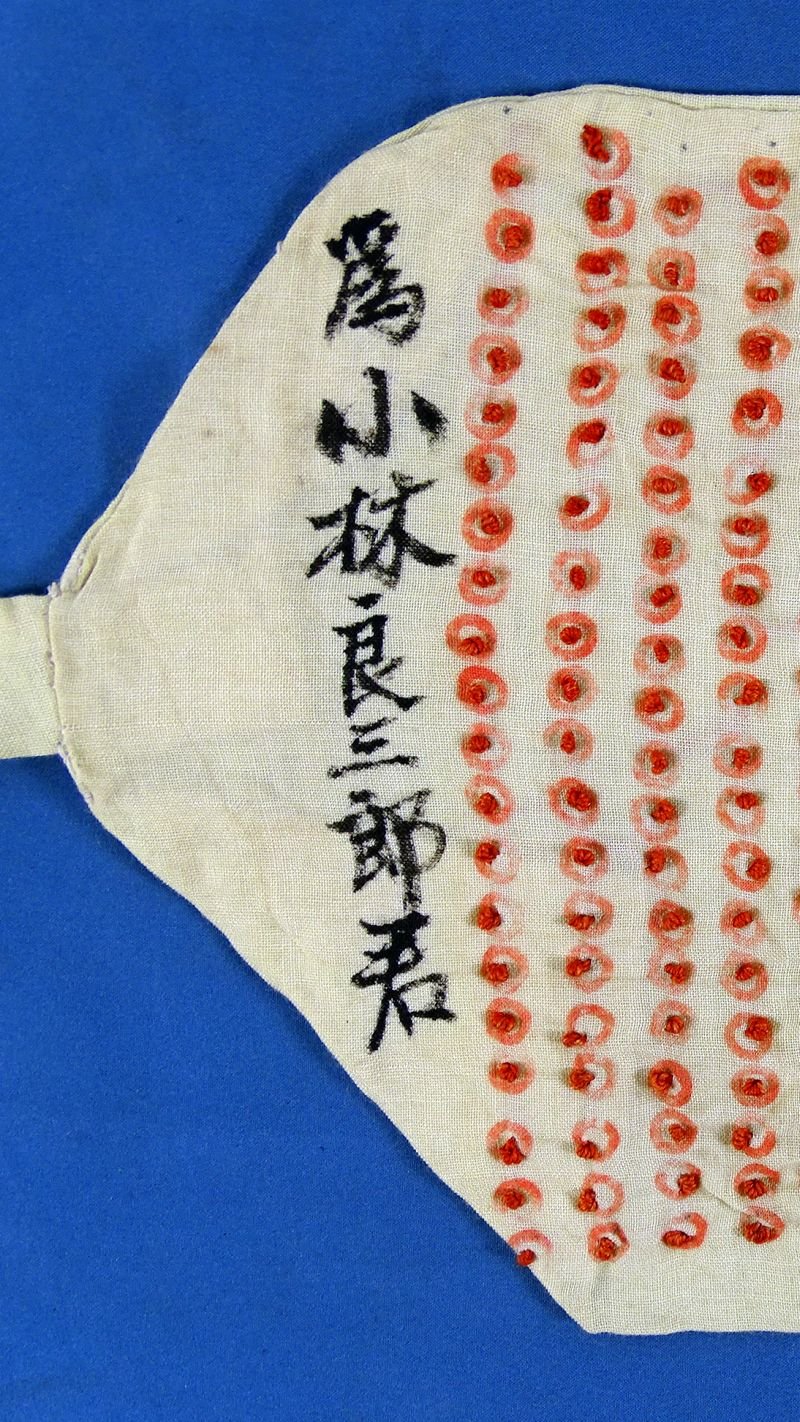 為小林良三郎君